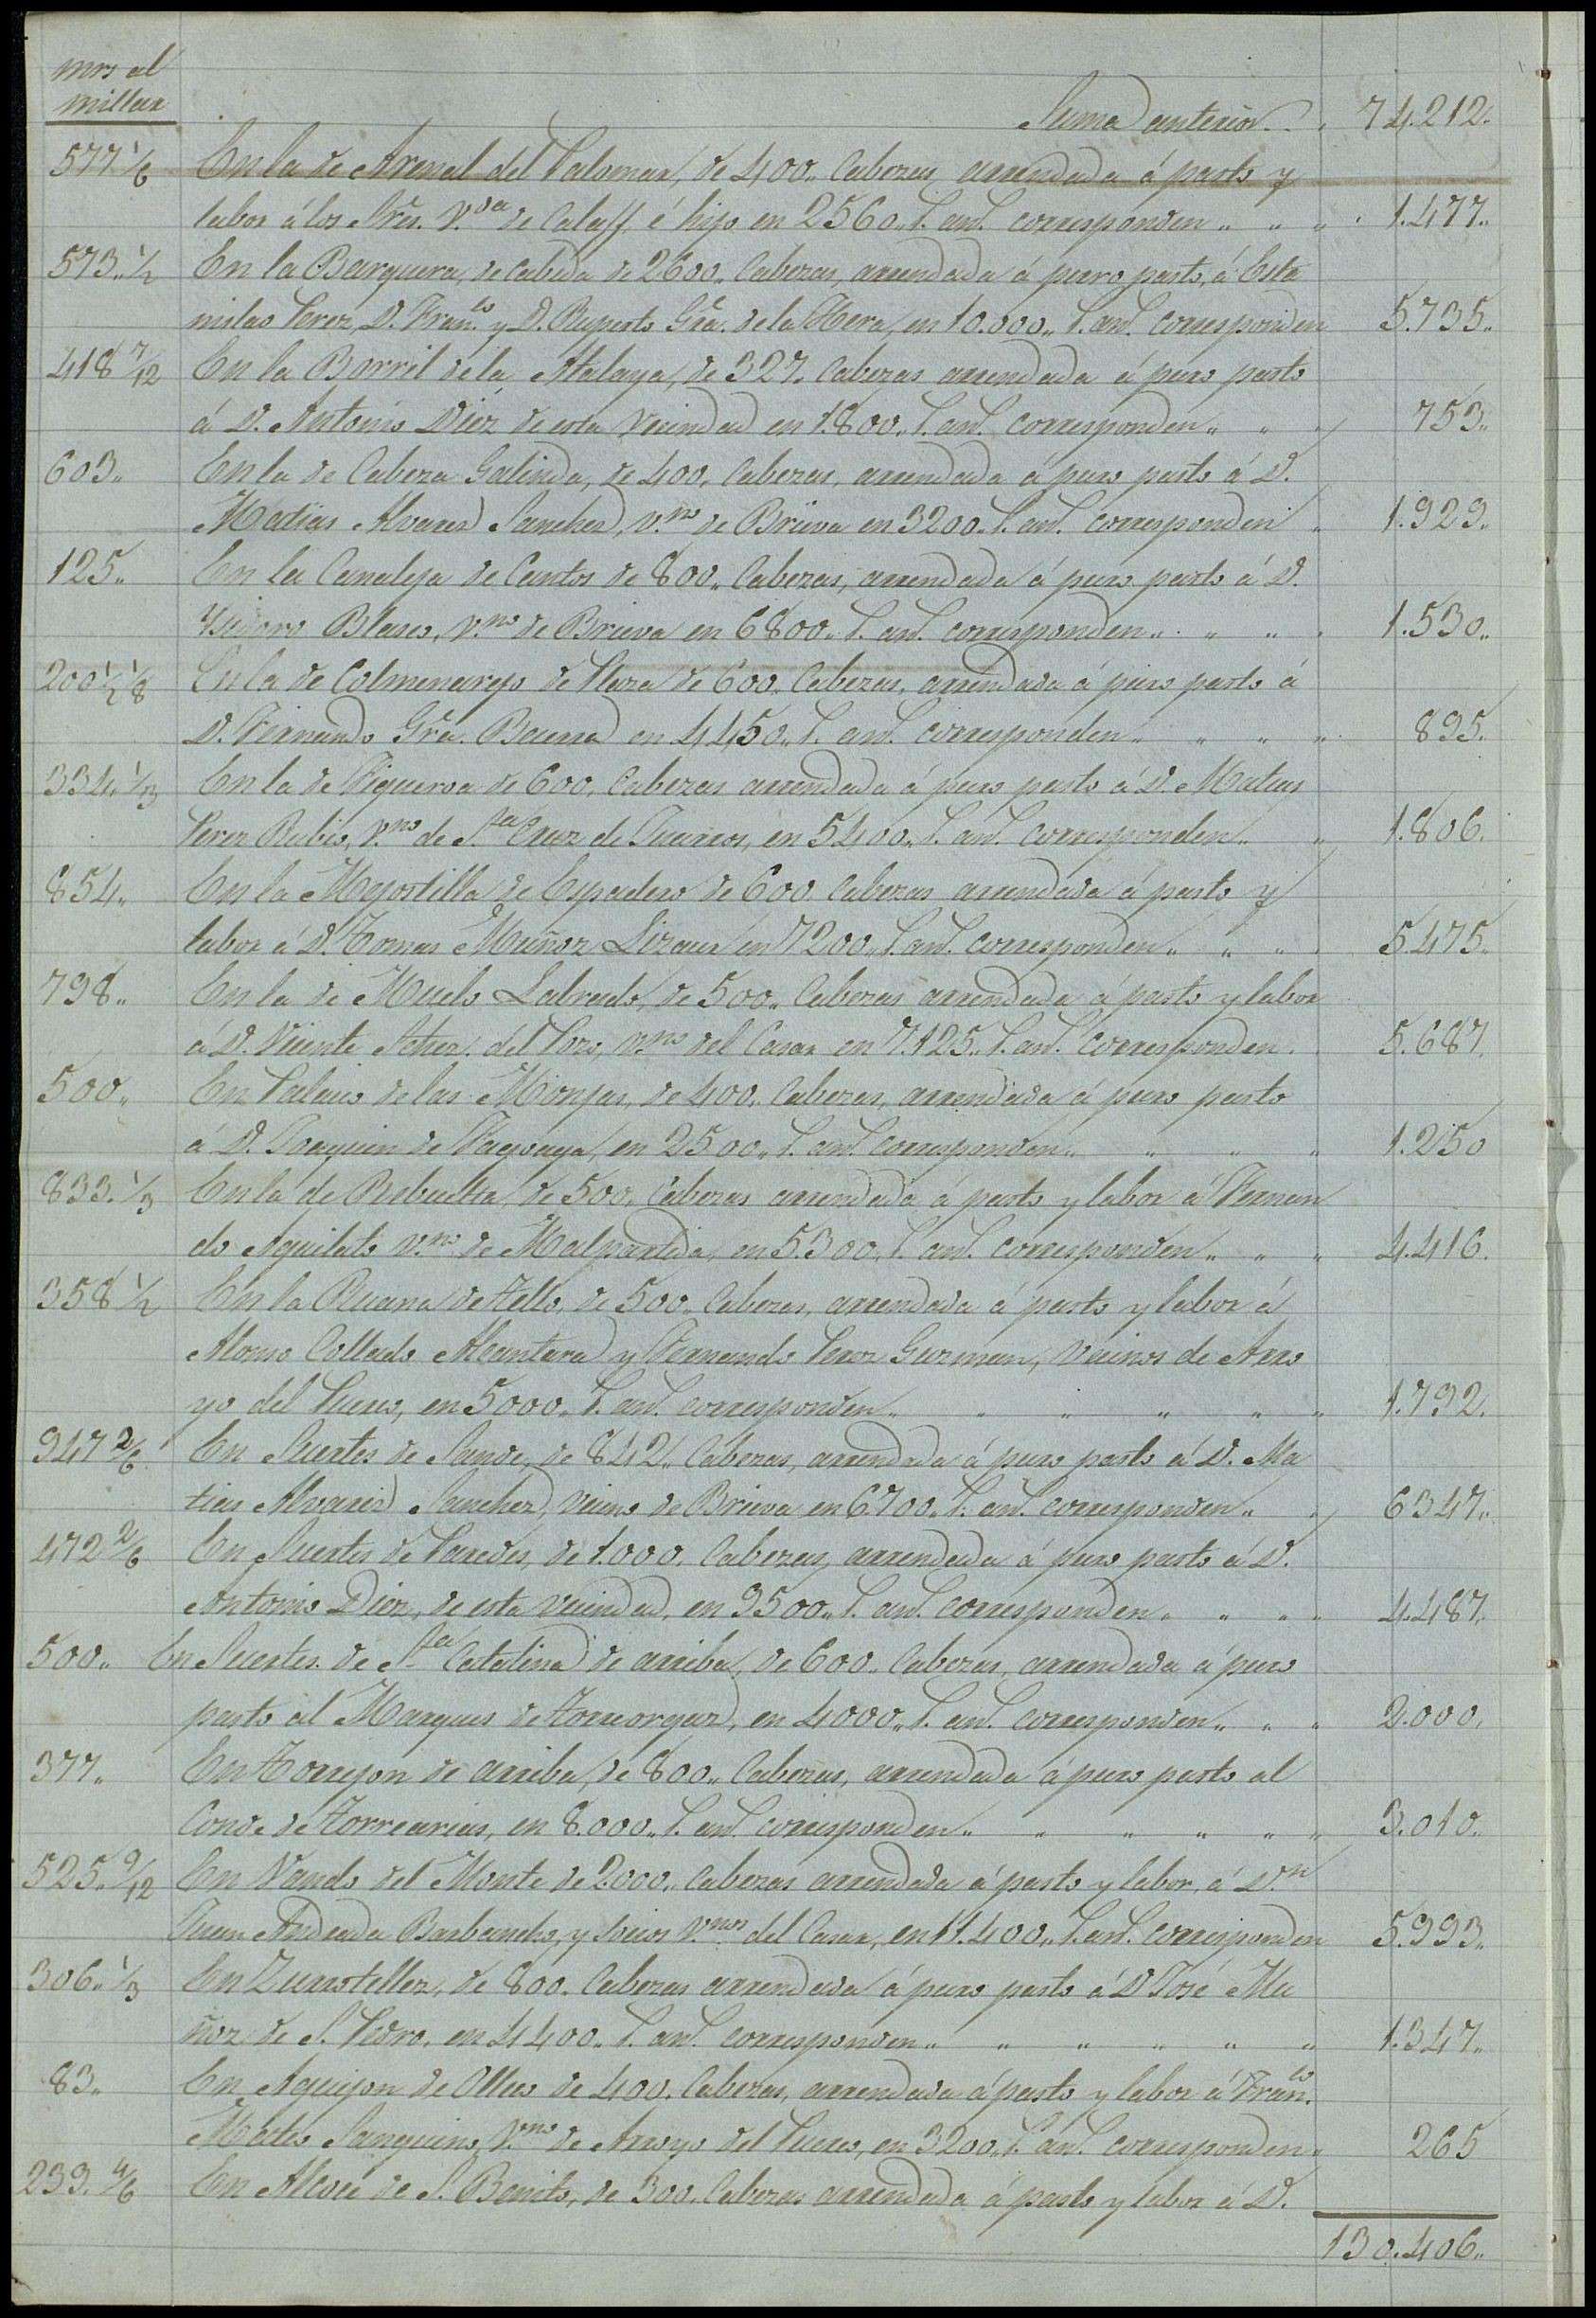 mrs al
millar
Suma anterior . . 74.212.
577 1/6 En la de Arenal del Palomar, de 400,, Cabezas arrendada á pasto y
labor á los Sres. V.da de Calaff, é hijo en 2560,, r. an.l corresponden ,, ,, ,, 1.477,,
573,, 1/2 En la Barquera, de cabida de 2600,, Cabezas, arrendada á puro pasto, á Esta
nislao Perez, D. Fran.co y D. Ruperto Gra. de la Hera, en 10.000,, r. an.l corresponden 5.735,,
418 7/12 En la Borril de la Atalaya, de 327,, Cabezas arrendada á puro pasto
á D. Antonio Diez de esta Vecindad en 1.800,, r. an.l corresponden ,, ,, ,, 753,,
603,, En la de Cabeza Galinda, de 400, Cabezas, arrendada á puro pasto á D.
Matias Alvarez Sanchez, v.no de Brieva en 3200,, r. an.l corresponden ,, 1.929,,
125,, En la Canaleja de Cantos de 800,, Cabezas, arrendada á puro pasto á D.
Ysidoro Blasco, v.no de Brieva en 6800,, r. an.l corresponden ,, ,, ,, 1.530,,
200 1/2 1/8 En la de Colmenarejo de Plaza de 600, Cabezas, arrendada á puro pasto á
D. Fernando Gra. Becerra en 4450,, r. an.l corresponden ,, ,, ,, ,, 895.
334, 1/3 En la de Figueroa de 600, Cabezas arrendada á puro pasto á D. Mateas
Perez Rubio, v.no de S.ta Cruz de Juarros, en 5400,, r. an.l corresponden ,, ,, 1.806.
854,, En la Mejostilla de Espadero de 600 Cabezas arrendada á pasto y
labor á D. Tomas Muñoz Lizaur en 7200,, r. an.l corresponden ,, ,, ,, 5.475,,
798,, En la de Muelo Labrado, de 500,, Cabezas arrendada á pasto y labor
á D. Vicente Schez. del Pozo, v.no del Casar en 7.125,, r. an.l corresponden. 5.687.
500,, En Palacio de las Monjas, de 400,, Cabezas, arrendada á puro pasto
á D. Joaquin de en 2500,, r. an.l corresponden ,, ,, ,, ,, 1.250
833. 1/3 En la de Rebuelta, de 500, Cabezas arrendada á pasto y labor á Fernan
do Aguilets v.no de Malpartida, en 5.300,, r. an.l corresponden ,, ,, ,, 4.416.
358 1/2 En la Ruana de Tello, de 500,, Cabezas, arrendada á pasto y labor á
Alonso Collado Alcantara y Fernando Perez Guzman, vecinos de Arro
yo del Puerco, en 5000,, r. an.l corresponden ,, ,, ,, ,, ,, ,, 1.792.
947 2/6 En Suertes de Sande, de 842,, Cabezas, arrendada á puro pasto á D. Ma
tias Alvarez Sanchez, vecino de Brieva en 6.700,, r. an.l corresponden ,, ,, 6347,,
472 2/6 En Suertes de Paredes, de 1.000, Cabezas, arrendada á puro pasto á D.
Antonio Diez, de esta vecindad, en 9500,, r. an.l corresponden ,, ,, ,, ,, 4.487.
500,, En Suertes de S.ta Catalina de arriba, de 600,, Cabezas, arrendada á puro
pasto al Marques de Torreorgaz, en 4000,, r. an.l corresponden ,, ,, ,, 2.000,
377,, En Torrejon de arriba, de 800,, Cabezas, arrendada á puro pasto al
Conde de Torrearias, en 8.000,, r. an.l corresponden ,, ,, ,, ,, ,, ,, 3.010,,
525,, 9/12 En Vando del Monte de 2.000,, Cabezas arrendada á pasto y labor, á D.n
Juan Andrada Barbancho, y socios v.nos del Casar, en 11.400,, r. an.l corresponden 5.993,,
306,, 1/3 En Zurrotellez, de 800, Cabezas arrendada á puro pasto á D José Mu
ñoz de S. Pedro, en 4400,, r. an.l corresponden ,, ,, ,, ,, ,, ,, 1.347,,
83,, En Aguijon de Olleo de 400, Cabezas, arrendada á pasto y labor á Fran.co
Mateo Sanguino, v.no de Arroyo del Puerco, en 3200,, r. an.l corresponden ,, 265
239. 4/6 En Alcoce de S. Benito, de 300, Cabezas arrendada á pasto y labor á D.
130.406,,